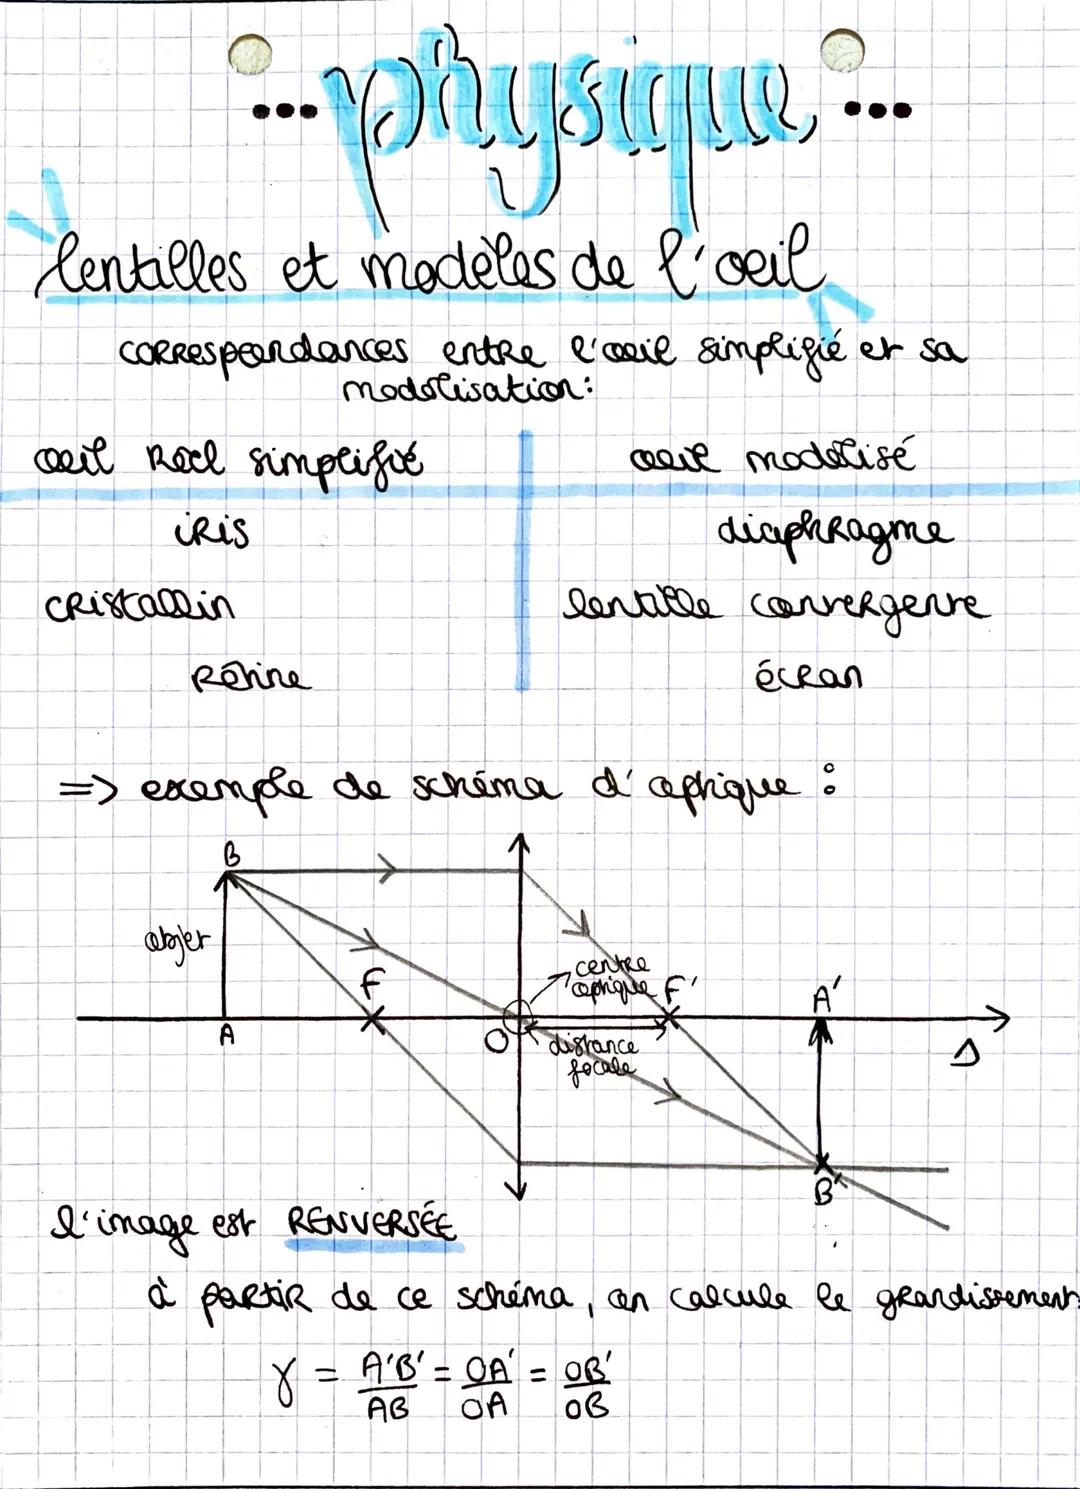 ... physique ...
lentilles et modèles de l'oeil
correspondances entre l'oeil simplifié et sa
modélisation:
oeil Réel simplifié
oeil modélisé
iris
diaphragme
cristallin
lentille convergente
Rétine
écran
=> exemple de schéma d'optique :
B
objet
centre
optique
F
F'
A'
A
O
distance
focale
Δ
B'
l'image est RENVERSÉE
à partir de ce schéma, on calcule le grandissement:
γ = A'B'/AB = OA'/OA = OB'/OB